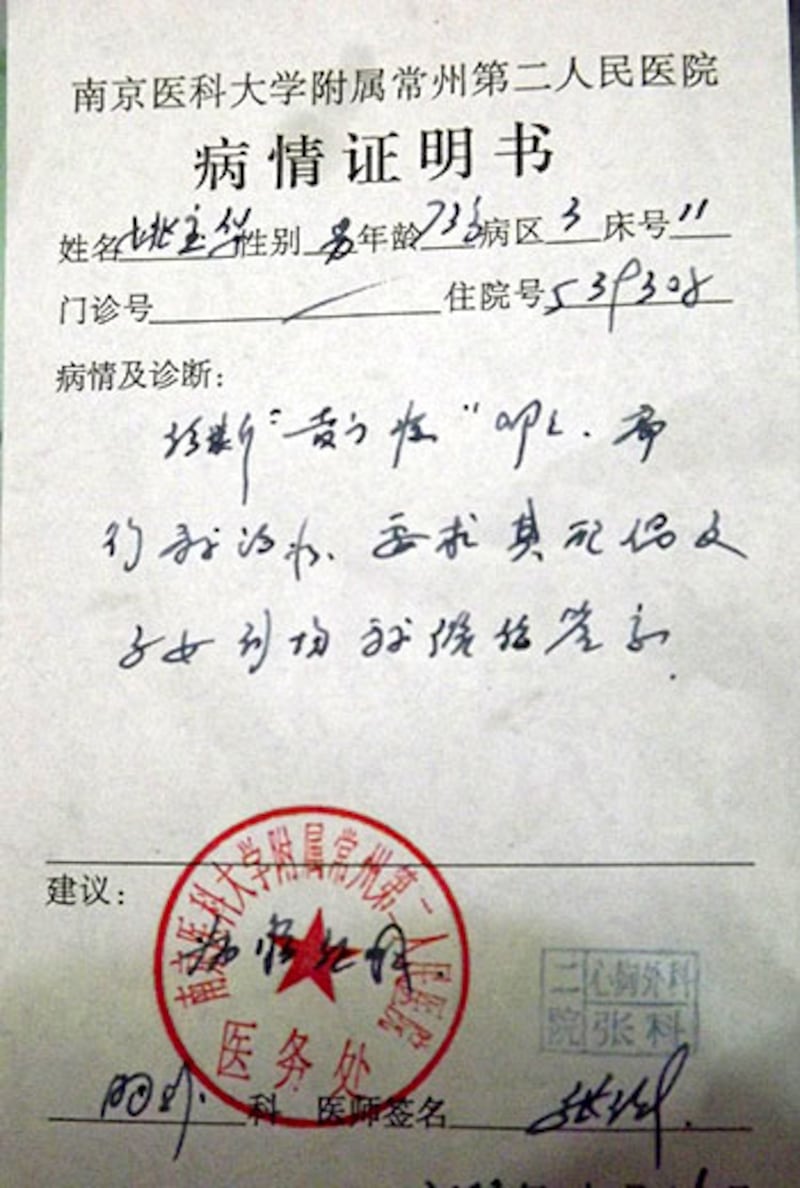 南京医科大学附属常州第二人民医院
病情证明书
姓名 姚宝华 性别 男 年龄 73岁 病区 3 床号 11
门诊号 住院号 539308
病情及诊断：
诊断“ ”明确. 需
行手术治疗. 要求其配偶及
子女到场 手术 签字.
建议：
南京医科大学附属常州第二人民医院
医务处
二院 心胸外科
张科
胸外 科 医师签名